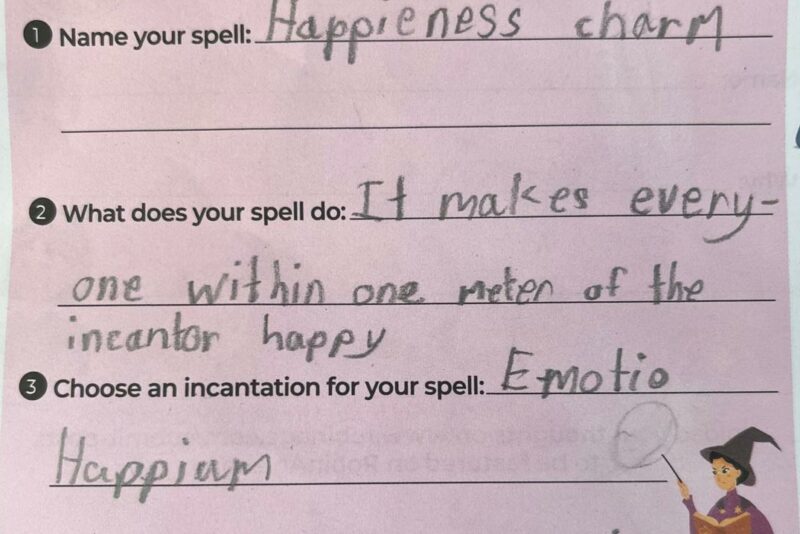 1 Name your spell: Happieness charm
2 What does your spell do: It makes every-
one within one meter of the
incantor happy
3 Choose an incantation for your spell: Emotio
Happium